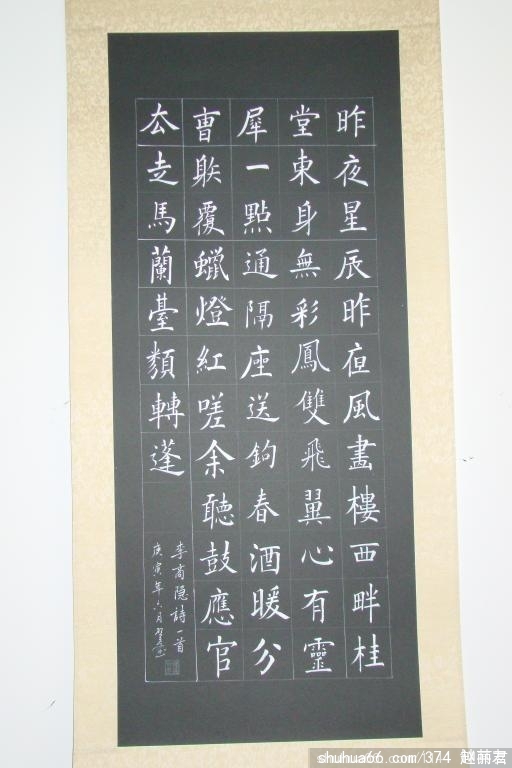 昨夜星辰昨夜風畫樓西畔桂
堂東身無彩鳳雙飛翼心有靈
犀一點通隔座送鉤春酒暖分
曹䠶覆蠟燈紅嗟余聽鼓應官
去走馬蘭臺類轉蓬
李商隱詩一首
庚寅年六月
shuhua66.com/374